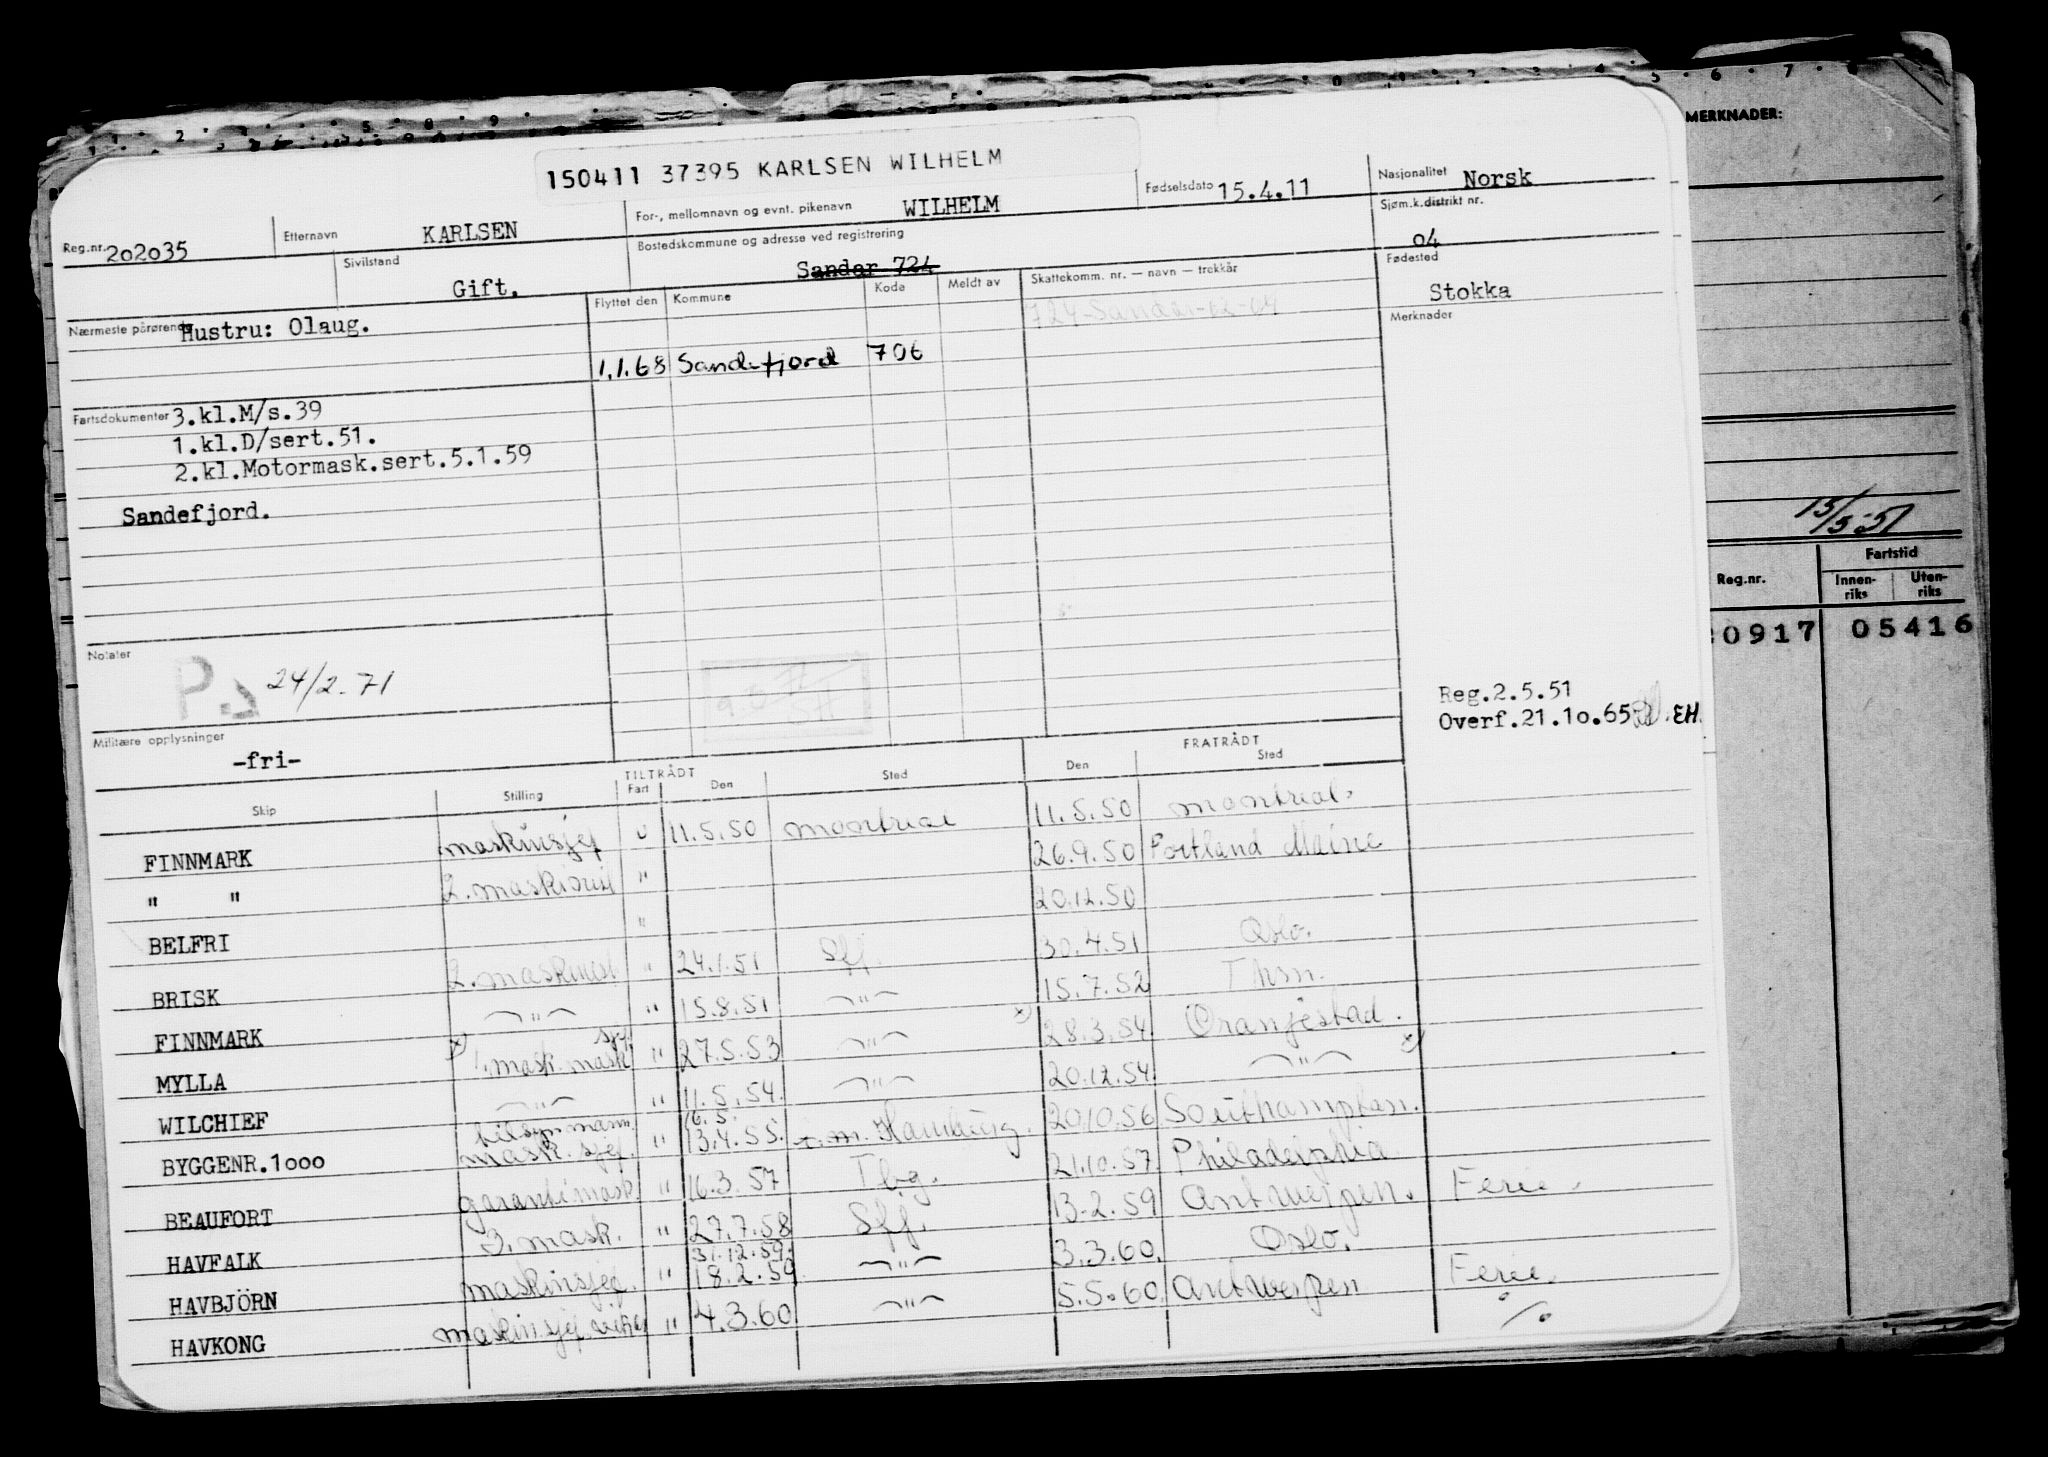 MERKNADER:
150411 37395 KARLSEN WILHELM
Reg.nr. 202035 Etternavn KARLSEN For-, mellomnavn og evnt. pikenavn WILHELM Fødselsdato 15.4.11 Nasjonalitet Norsk
Sivilstand Gift. Bostedskommune og adresse ved registrering Sandar 724 Sjøm.k.distrikt nr. 04
Fødested Stokka
Nærmeste pårørende Hustru: Olaug.
Flyttet den Kommune Kode Meldt av Skattekomm. nr. — navn — trekkår Merknader
724-Sandar-12-04
1.1.68 Sandefjord 706
Fartsdokumenter 3.kl.M/s.39
1.kl.D/sert.51.
2.kl.Motormask.sert.5.1.59
Sandefjord.
15/5-51
Fartstid
Reg.nr. Innen-riks Uten-riks
0917 05416
Notater
24/2.71
Reg.2.5.51
Overf.21.1o.65 EH.
Militære opplysninger
-fri-
TILTRÅDT FRATRÅDT
Skip Stilling Fart Den Sted Den Sted
FINNMARK maskinsjef U 11.5.50 montreal 11.5.50 montreal.
" " 2. maskinist " 26.9.50 Portland Maine
BELFRI " 20.12.50
BRISK 2. maskinist " 24.1.51 Sfj. 30.4.51 Oslo.
FINNMARK —"— " 15.8.51 —"— 15.7.52 Thsn.
MYLLA x) 1. mask. mask sjef " 27.5.53 —"— x) 28.3.54 Oranjestad.
WILCHIEF —"— " 11.5.54. —"— 20.12.54. —"— x)
BYGGENR.1ooo tilsynmann. mask. sjef. " 16.5. 13.4.55. Hamburg. 20.10.56 Southampton.
BEAUFORT garantimask. " 16.3.57 Tbg. 21.10.57 Philadelphia
HAVFALK 3. mask. " 27.7.58 Sfj. 13.2.59 Antwerpen. Ferie.
HAVBJÖRN maskinsjef. " 31.12.59. 18.2.59 —"— 3.3.60. Oslo.
HAVKONG maskinsjef vikar " 4.3.60 —"— 5.5.60 Antwerpen Ferie.
%.